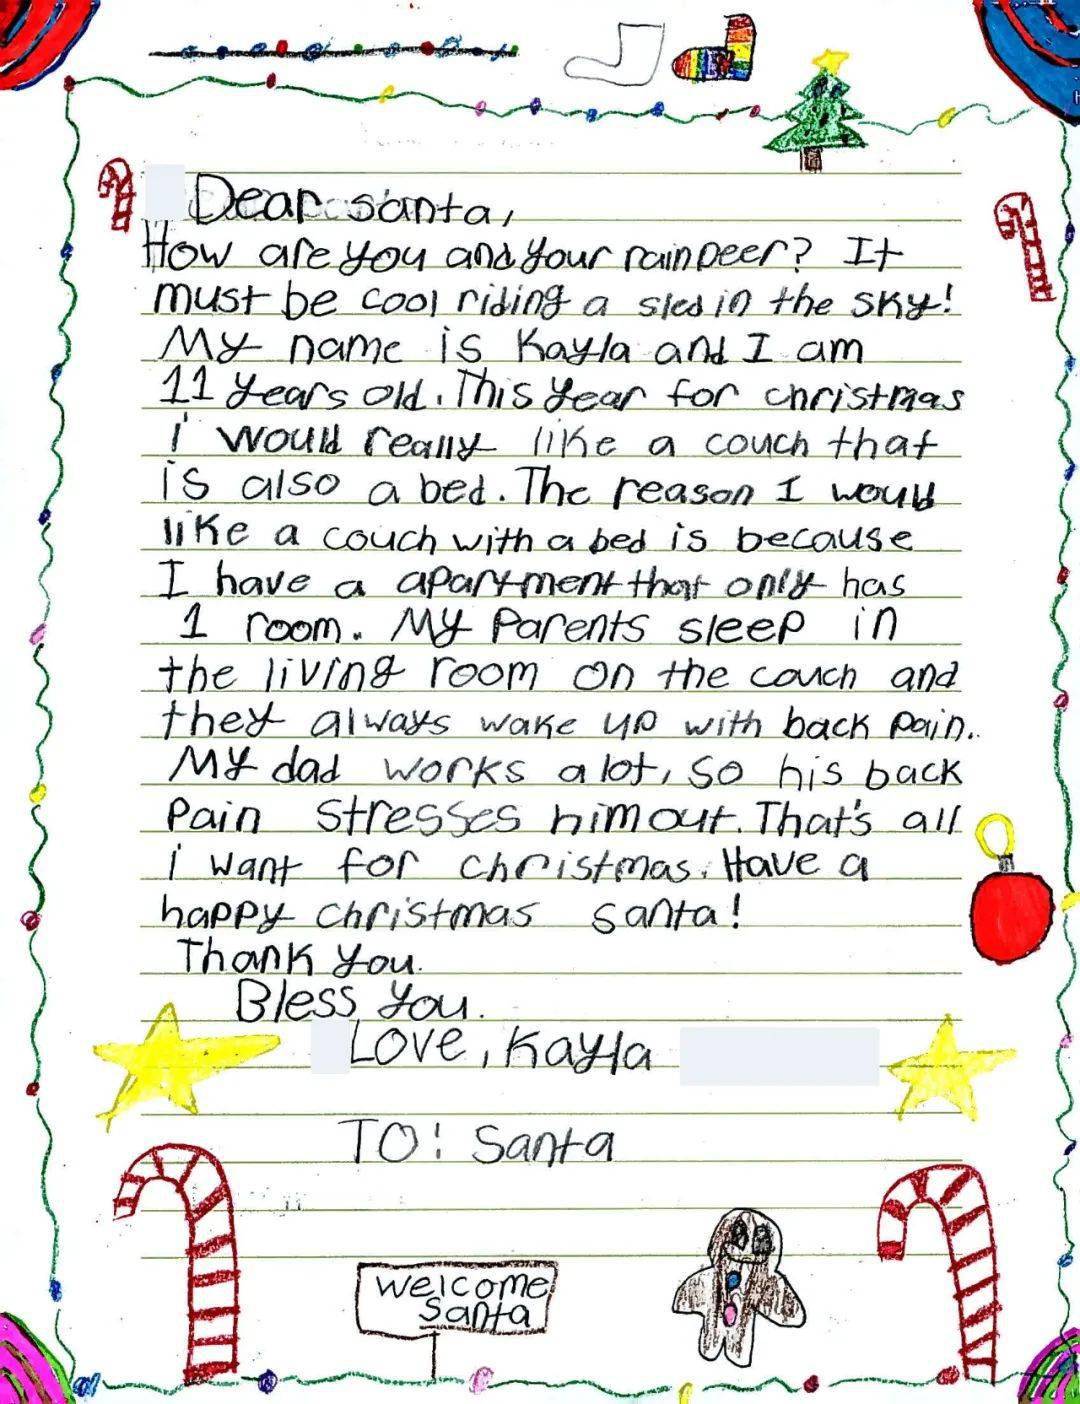 Dear santa,
How are you and your rainDeer? It
must be cool riding a sled in the sky!
My name is Kayla and I am
11 years old. This year for christmas
i would really like a couch that
is also a bed. The reason I would
like a couch with a bed is because
I have a apartment that only has
1 room. My Parents sleep in
the living room on the couch and
they always wake up with back pain.
My dad works a lot, so his back
Pain stresses him out. That's all
i want for christmas. Have a
happy christmas santa!
Thank you.
Bless you.
Love, Kayla
TO: Santa
welcome
Santa